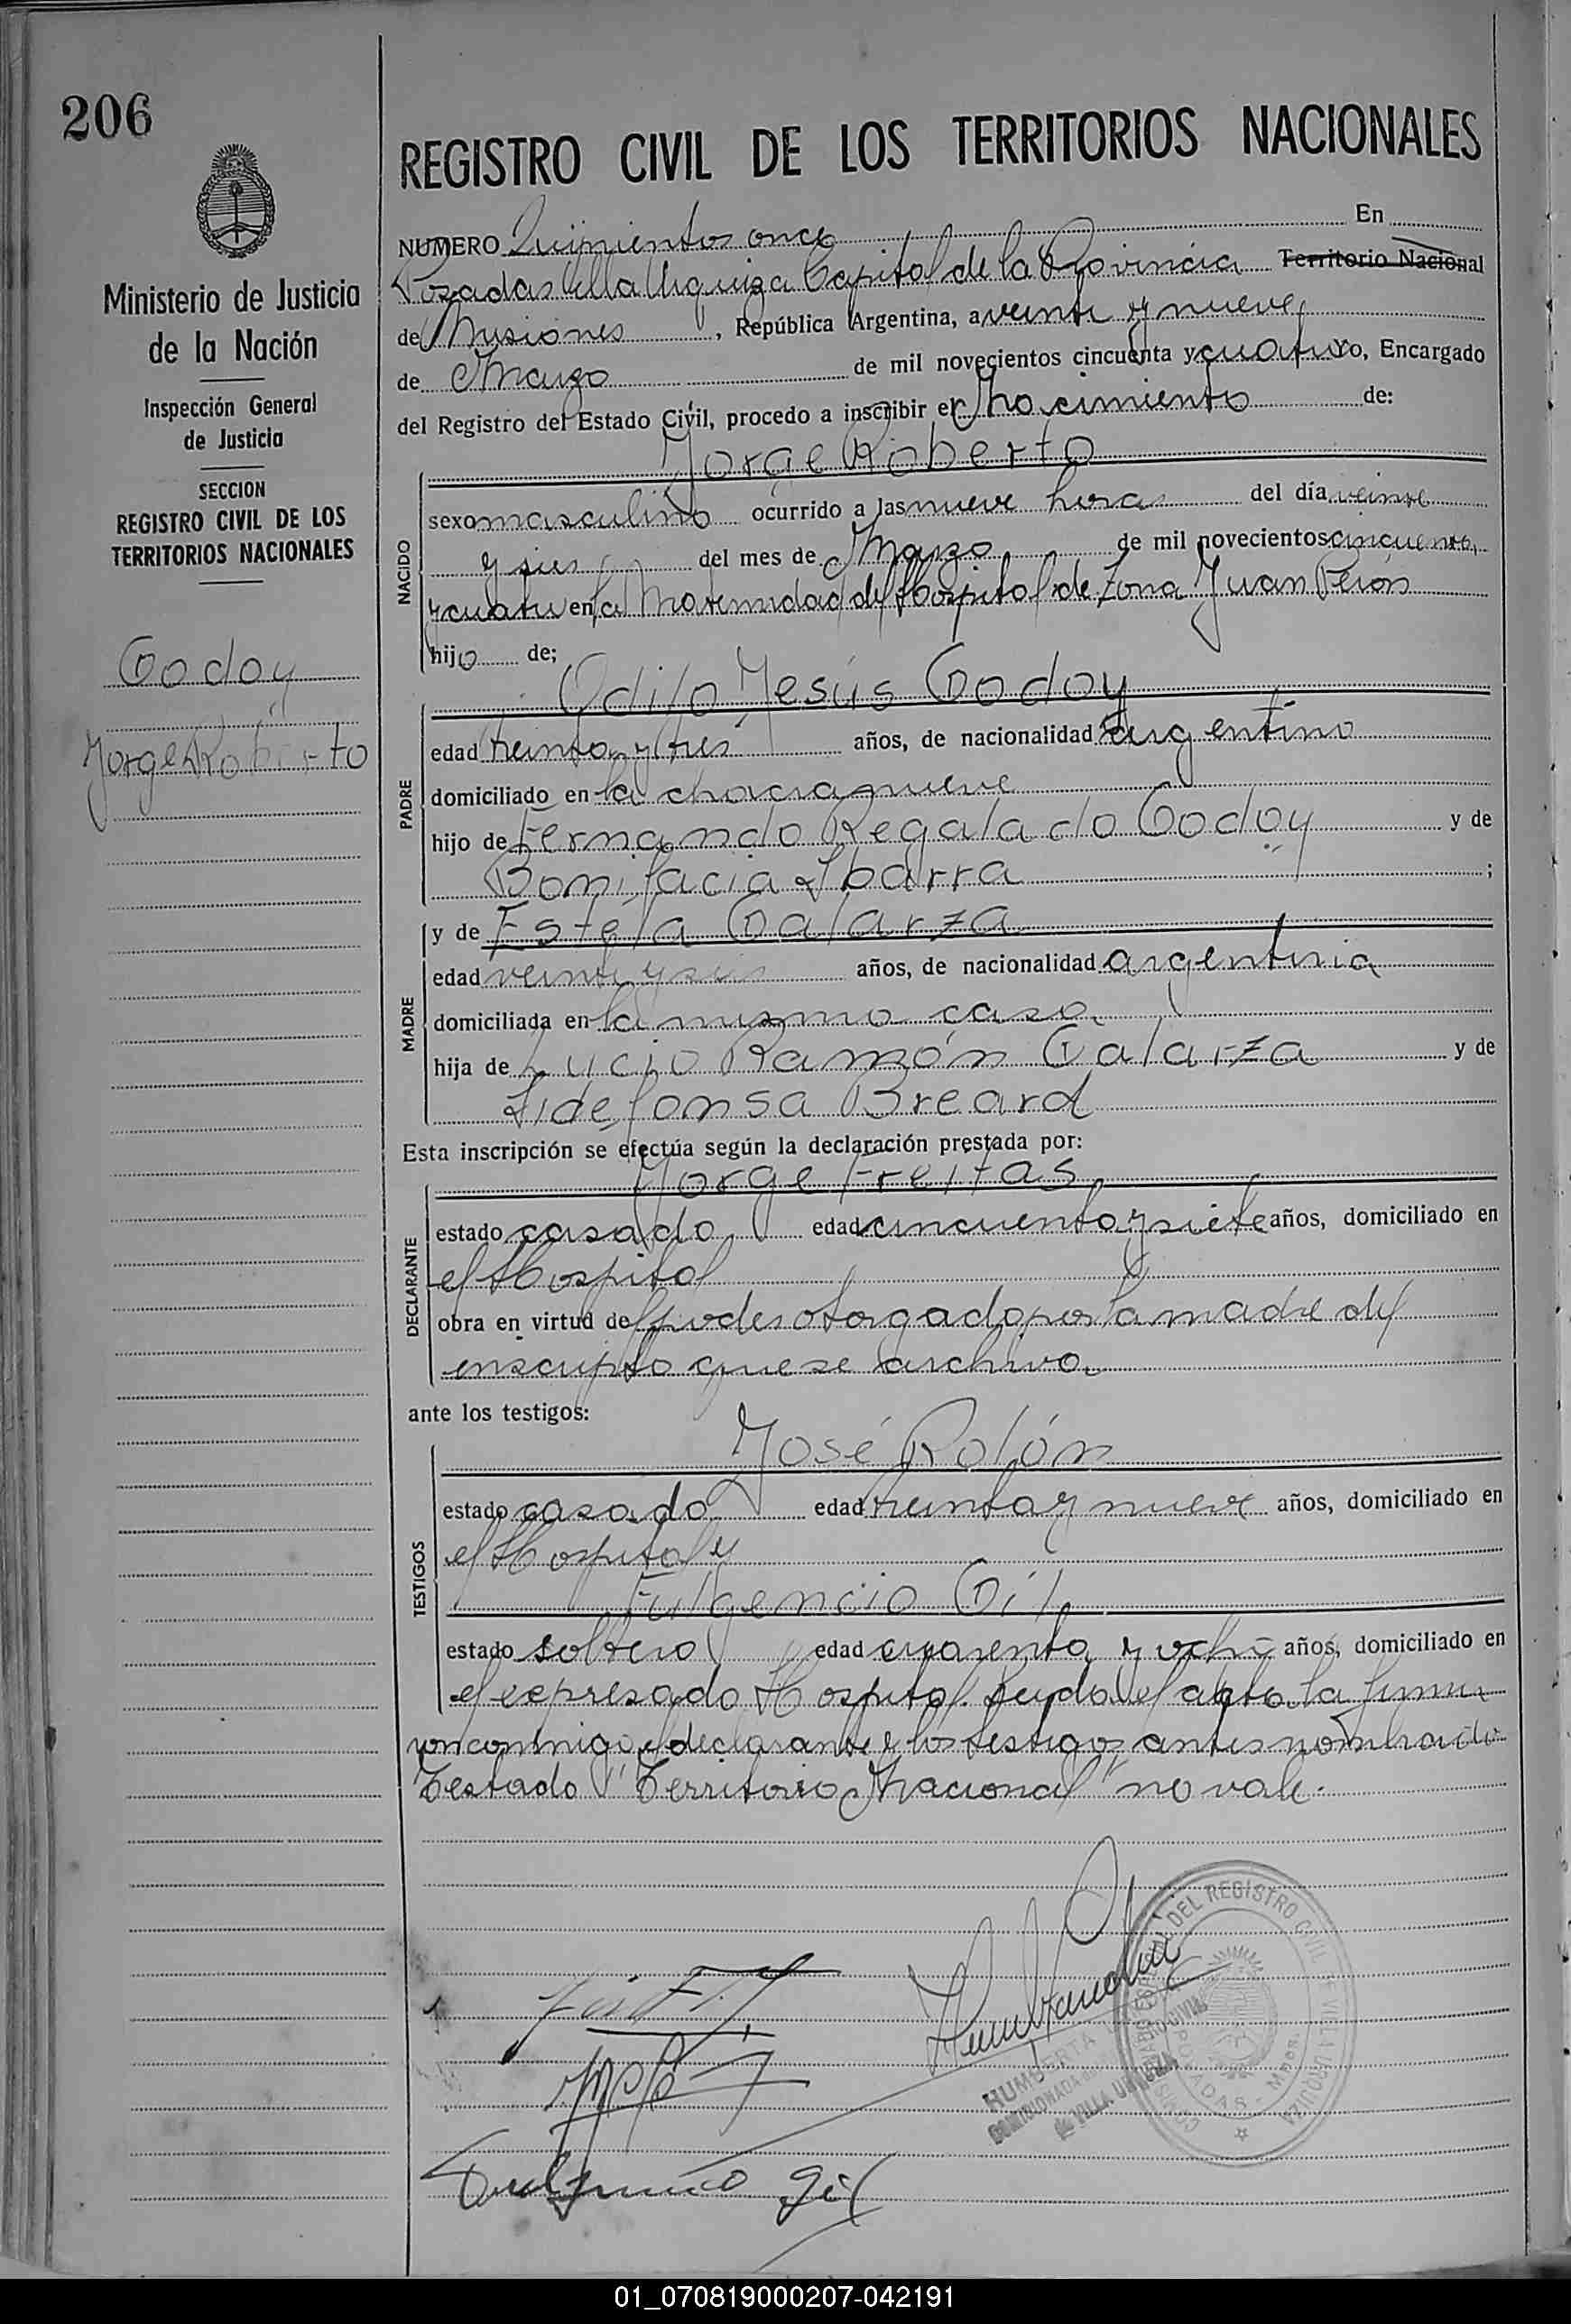 206
Ministerio de Justicia
de la Nación
Inspección General
de Justicia
SECCION
REGISTRO CIVIL DE LOS
TERRITORIOS NACIONALES
Godoy
Jorge Roberto
REGISTRO CIVIL DE LOS TERRITORIOS NACIONALES
NUMERO Quinientos once En
Posadas Villa Urquiza Capital de la Provincia Territorio Nacional
de Misiones, República Argentina, a veinte y nueve
de Marzo de mil novecientos cincuenta y cuatro Yo, Encargado
del Registro del Estado Civil, procedo a inscribir el Nacimiento de:
Jorge Roberto
NACIDO
sexo masculino ocurrido a las nueve horas del día veinte
y seis del mes de Marzo de mil novecientos cincuenta
y cuatro en la Maternidad del Hospital de Zona Juan Perón
hijo de;
Odilo Jesús Godoy
PADRE
edad treinta y tres años, de nacionalidad argentino
domiciliado en la chacra nueve
hijo de Fernando Regalado Godoy y de
Bonifacia Ibarra ;
y de Estela Galarza
MADRE
edad veinte y seis años, de nacionalidad argentina
domiciliada en la misma casa
hija de Lucio Ramón Galarza y de
Ildefonsa Breard
Esta inscripción se efectúa según la declaración prestada por:
Jorge Freitas
DECLARANTE
estado casado edad cincuenta y siete años, domiciliado en
el Hospital
obra en virtud del poder otorgado por la madre del
inscripto que se archiva
ante los testigos:
José Rolón
TESTIGOS
estado casado edad treinta y nueve años, domiciliado en
el Hospital y
Fulgencio Gil
estado soltero edad cuarenta y ocho años, domiciliado en
el expresado Hospital. Leida el acta la firma
ron conmigo el declarante y los testigos antes nombrado
Testado "Territorio Nacional" no vale.
DEL REGISTRO CIVIL DE VILLA URQUIZA
POSADAS
HUMBERTA
de VILLA URQUIZA
Fulgencio Gil
01_070819000207-042191